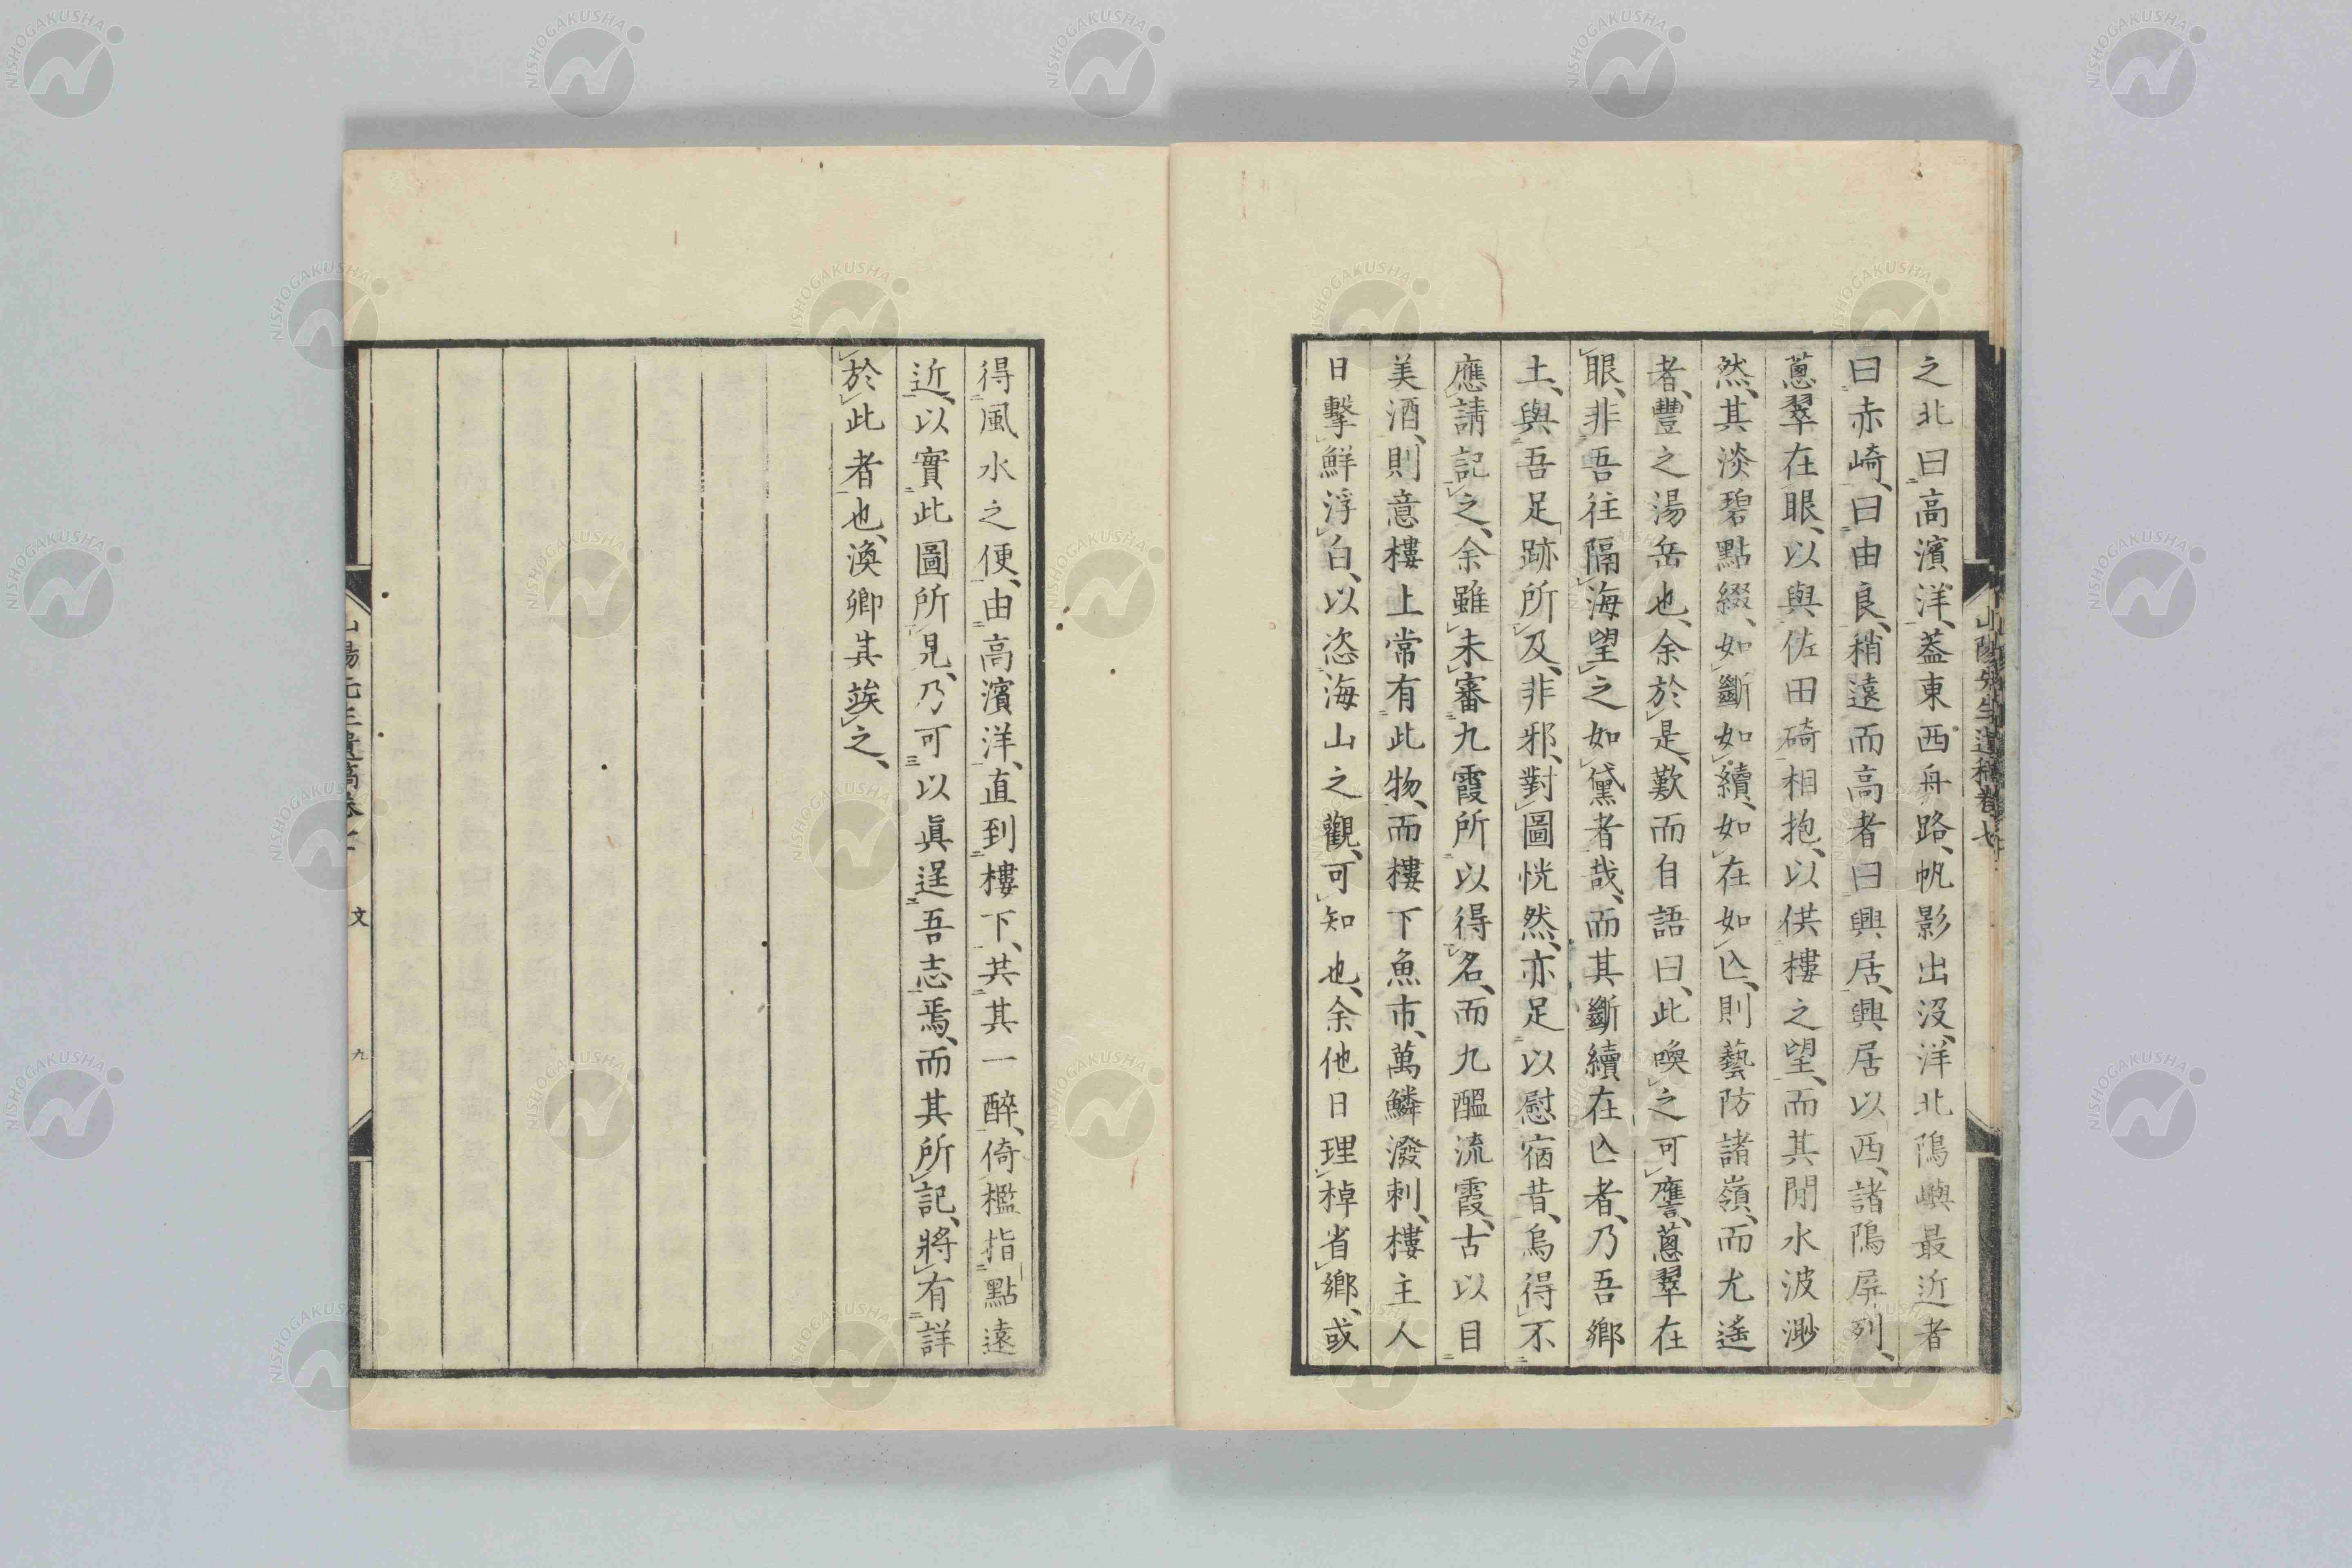 之北曰高濱洋、葢東西舟路、帆影出沒、洋北隝嶼最近者
曰赤崎、曰由良、稍遠而高者曰興居、興居以西、諸隝屏列、
蔥翠在眼、以與佐田碕相抱、以供樓之望、而其閒水波渺
然、其淡碧點綴、如斷如續、如在如亾、則藝防諸嶺、而尤遙
者、豐之湯岳也、余於是、歎而自語曰、此喚之可譍、蔥翠在
眼、非吾往隔海望之如黛者哉、而其斷續在亾者、乃吾鄉
土、與吾足跡所及、非邪、對圖恍然、亦足以慰宿昔、烏得不
應請記之、余雖未審九霞所以得名、而九醞流霞、古以目
美酒、則意樓上常有此物、而樓下魚市、萬鱗潑刺、樓主人
日擊鮮浮白、以恣海山之觀、可知也、余他日理棹省鄉、或
得風水之便、由高濱洋、直到樓下、共其一醉、倚檻指點遠
近、以實此圖所見、乃可以眞逞吾志焉、而其所記、將有詳
於此者也、渙卿其竢之、
山陽先生遺稿卷七
文
九
NISHOGAKUSHA